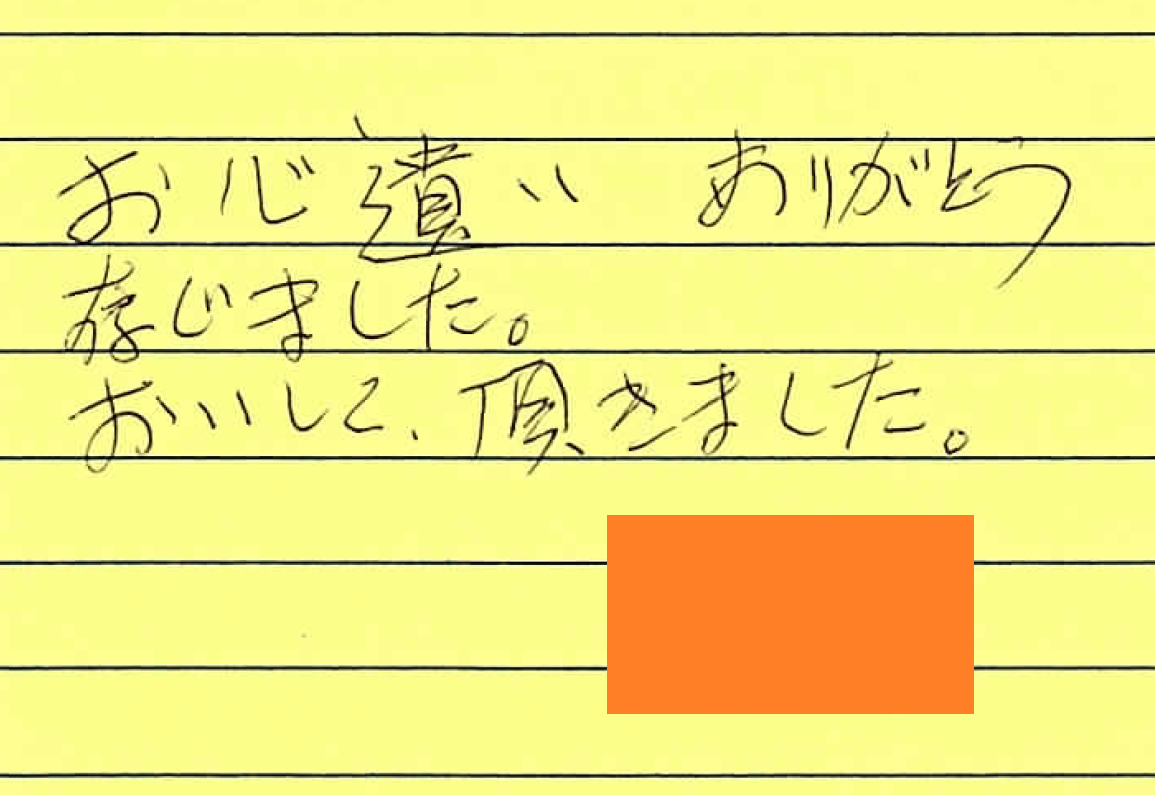 お心遣い ありがとう
存じました。
おいしく、頂きました。